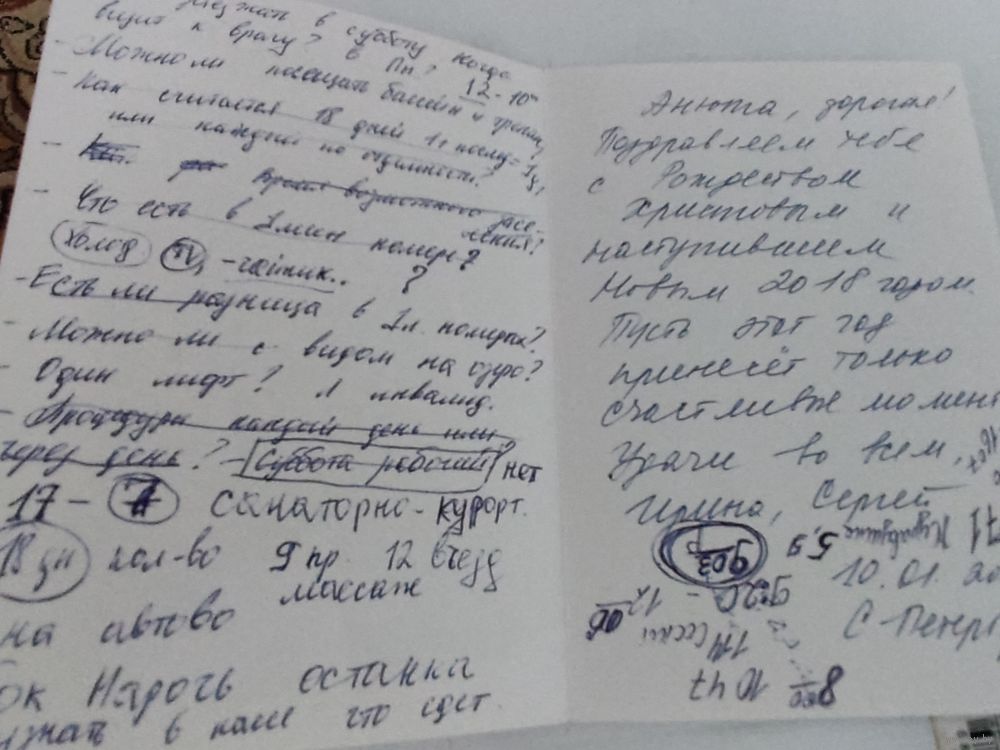 в субботу, когда
визит к врачу? в Пн?
- Можно ли посещать бассейн и
12 -
- Как считается 18 дней
или каждый по отдельности?
- Время возможного
- Что есть в 1мин номере?
холод - чайник.. ?
- Есть ли разница в 1л. номерах?
- Можно ли с видом на озеро?
- Один лифт? 1 инвалид.
- Процедуры каждый день или
через день? - Суббота рабочий? нет
17 - санаторно-курорт.
18 дн кол-во 9 пр. 12 въезд
массаж
на автово
ок Нарочь останка
в касе что едет.
Анюта, дорогая!
Поздравляем тебе
с Рождеством
Христовым и
наступившем
Новым 2018 годом.
Пусть этот год
принесёт только
счастливые момен
Удачи во всем,
Ирина, Сергей
5,9
71
903
10.01.
920 - 12
С-Петер
10 47
800